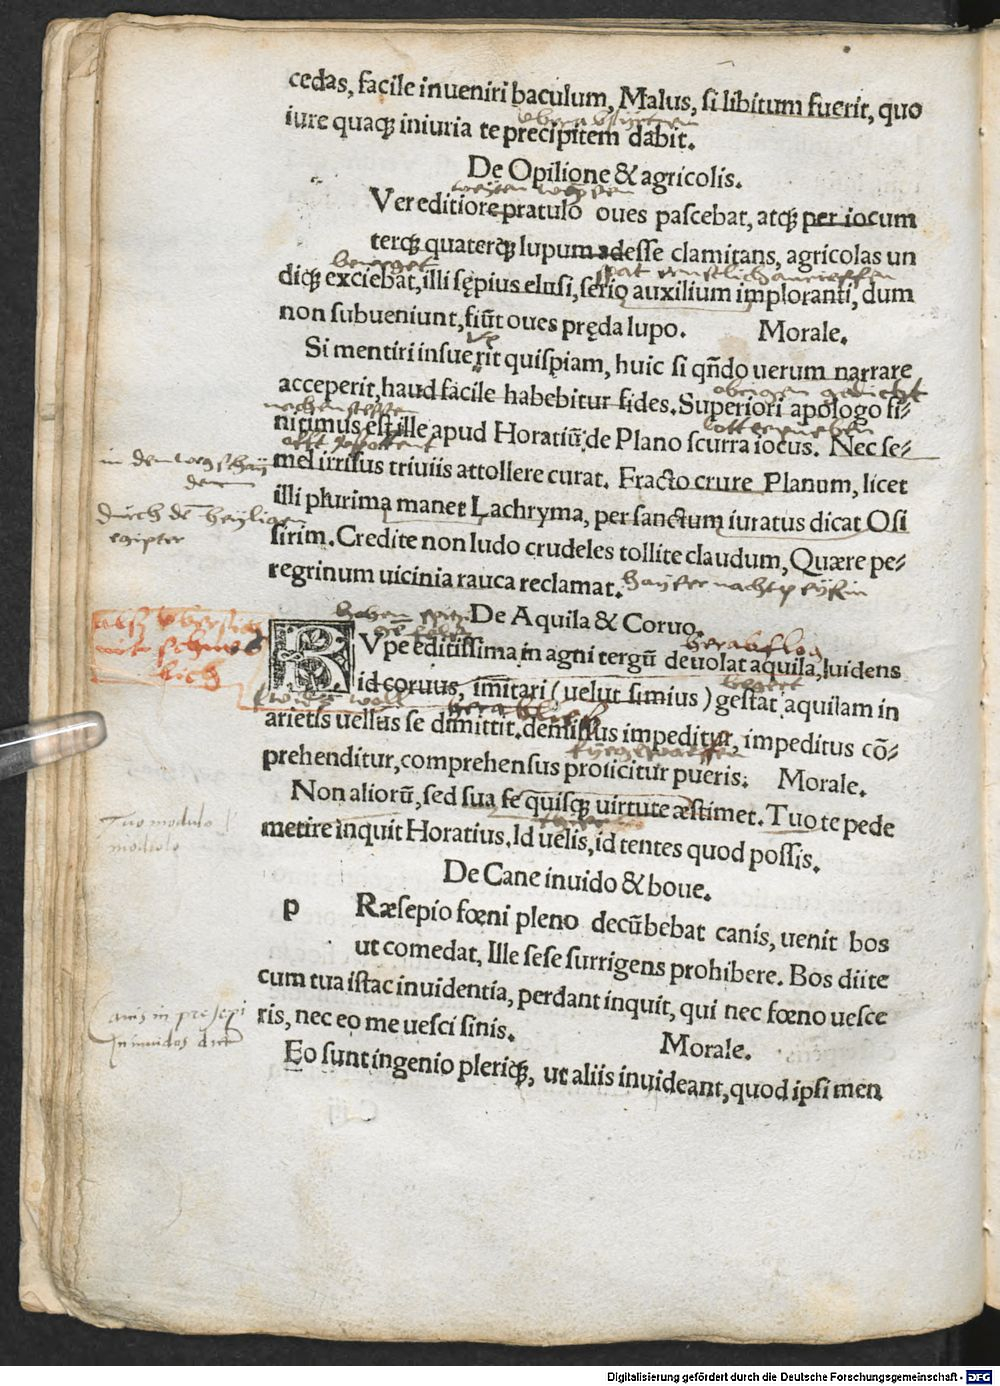 cedas, facile inueniri baculum, Malus, si libitum fuerit, quo
iure quaqꝫ iniuria te precipitem dabit.
De Opilione & agricolis.
Ver editiore pratulo oues pascebat, atqꝫ per iocum
terqꝫ quaterqꝫ lupum adesse clamitans, agricolas un
diqꝫ exciebat, illi sępius elusi, serio auxilium imploranti, dum
non subueniunt, fiūt oues pręda lupo. Morale.
Si mentiri insuerit quispiam, huic si qn̄do uerum narrare
acceperit, haud facile habebitur fides. Superiori apologo fi-
nitimus est ille apud Horatiū, de Plano scurra iocus. Nec se-
mel irrisus triuiis attollere curat. Fracto crure Planum, licet
illi plurima manet Lachryma, per sanctum iuratus dicat Osi
sirim. Credite non ludo crudeles tollite claudum, Quære pe-
regrinum uicinia rauca reclamat.
De Aquila & Coruo.
RVpe editissima in agni tergū deuolat aquila, uidens
id coruus, im̄itari (uelut simius) gestat aquilam in
arietis uellus se dimittit, demissus impeditur, impeditus cō-
prehenditur, comprehensus proiicitur pueris. Morale.
Non aliorū, sed sua se quisqꝫ uirtute æstimet. Tuo te pede
metire inquit Horatius. Id uelis, id tentes quod possis.
Tuo modulo
modiolo
De Cane inuido & boue.
p Ræsepio fœni pleno decūbebat canis, uenit bos
ut comedat, Ille sese surrigens prohibere. Bos dii te
cum tua istac inuidentia, perdant inquit, qui nec fœno uesce
ris, nec eo me uesci sinis. Morale.
Canis in presepi
In inuidos
Eo sunt ingenio pleriqꝫ, ut aliis inuideant, quod ipsi men
Digitalisierung gefördert durch die Deutsche Forschungsgemeinschaft - DFG